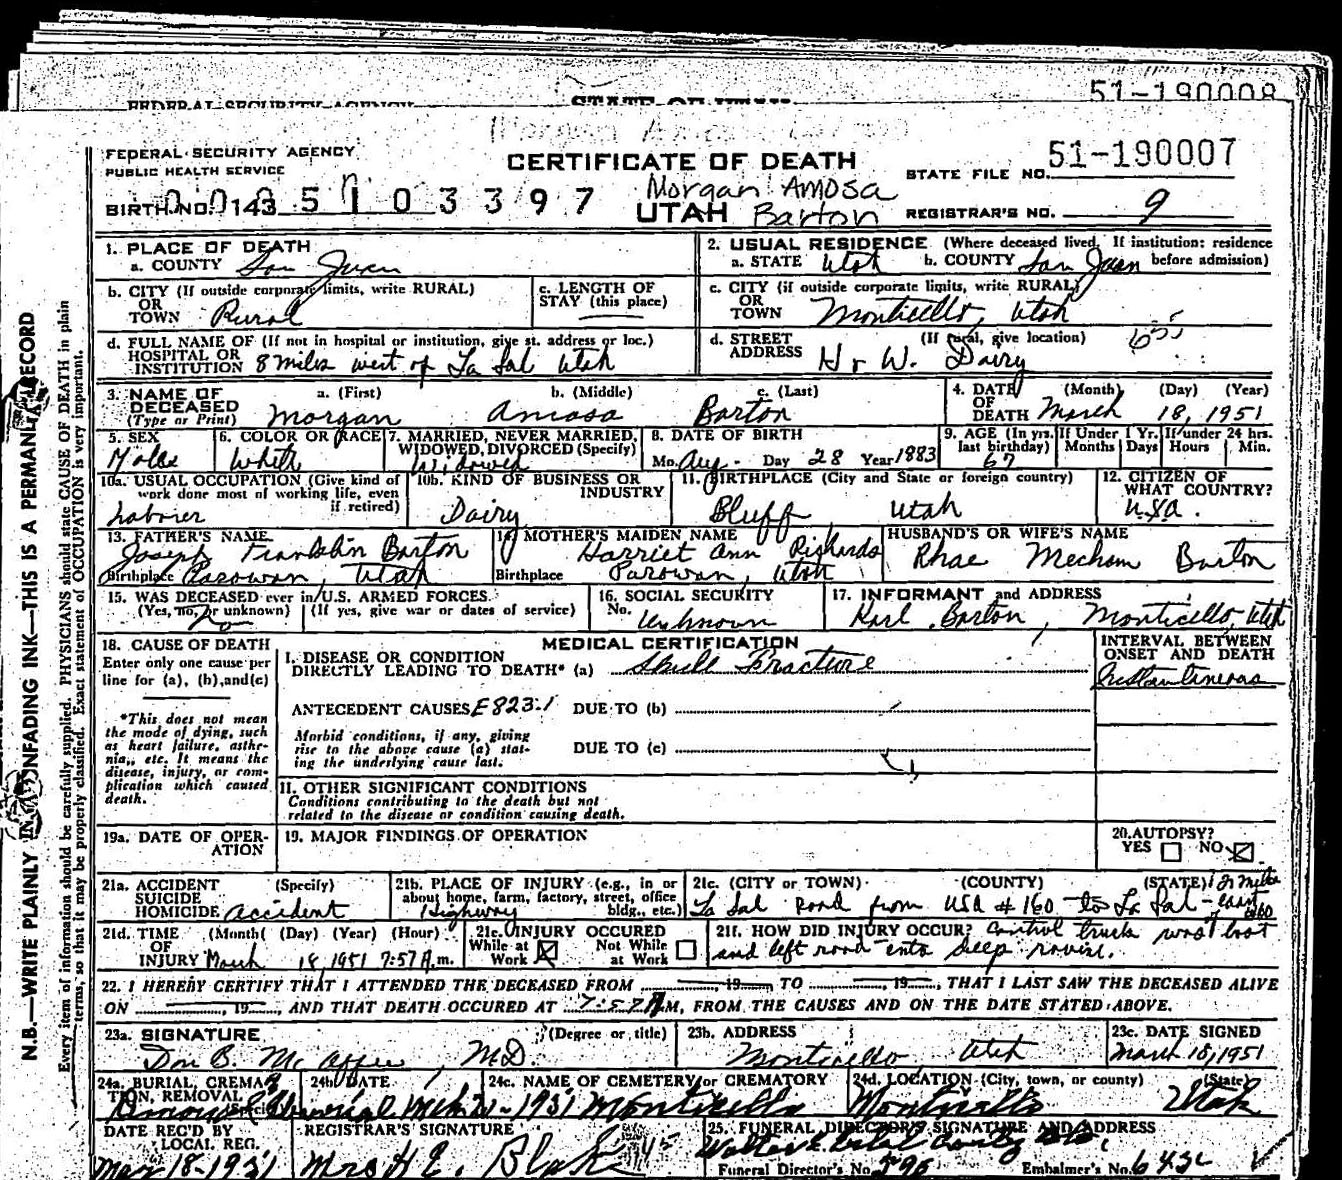 51-190008
FEDERAL SECURITY AGENCY STATE OF UTAH
FEDERAL SECURITY AGENCY
PUBLIC HEALTH SERVICE
CERTIFICATE OF DEATH
STATE FILE NO. 51-190007
BIRTH NO. 143 5 1 0 3 3 9 7
UTAH
Morgan Amosa
Barton
REGISTRAR'S NO. 9
1. PLACE OF DEATH
a. COUNTY San Juan
2. USUAL RESIDENCE (Where deceased lived. If institution: residence before admission)
a. STATE Utah b. COUNTY San Juan
b. CITY (If outside corporate limits, write RURAL)
OR
TOWN Rural
c. LENGTH OF
STAY (this place)
c. CITY (if outside corporate limits, write RURAL)
OR
TOWN Monticello, Utah
d. FULL NAME OF (If not in hospital or institution, give st. address or loc.)
HOSPITAL OR
INSTITUTION 8 miles west of La Sal Utah
d. STREET (If rural, give location)
ADDRESS H & W. Dairy
655
3. NAME OF DECEASED (Type or Print)
a. (First) b. (Middle) c. (Last)
Morgan Amasa Barton
4. DATE OF DEATH (Month) (Day) (Year)
March 18, 1951
5. SEX
Male
6. COLOR OR RACE
White
7. MARRIED, NEVER MARRIED,
WIDOWED, DIVORCED (Specify)
Widowed
8. DATE OF BIRTH
Mo. Aug. Day 28 Year 1883
9. AGE (In yrs. last birthday) 67
If Under 1 Yr. Months Days
If under 24 hrs. Hours Min.
10a. USUAL OCCUPATION (Give kind of
work done most of working life, even
if retired)
Laborer
10b. KIND OF BUSINESS OR
INDUSTRY
Dairy
11. BIRTHPLACE (City and State or foreign country)
Bluff Utah
12. CITIZEN OF
WHAT COUNTRY?
U.S.A.
13. FATHER'S NAME
Joseph Franklin Barton
Birthplace Parowan, Utah
14. MOTHER'S MAIDEN NAME
Harriet Ann Richards
Birthplace Parowan, Utah
HUSBAND'S OR WIFE'S NAME
Rhae Mecham Barton
15. WAS DECEASED ever in U.S. ARMED FORCES.
(Yes, no, or unknown) (If yes, give war or dates of service)
No
16. SOCIAL SECURITY
No. Unknown
17. INFORMANT and ADDRESS
Karl Barton, Monticello, Utah
18. CAUSE OF DEATH
Enter only one cause per
line for (a), (b), and (c)
*This does not mean
the mode of dying, such
as heart failure, asthe-
nia, etc. It means the
disease, injury, or com-
plication which caused
death.
MEDICAL CERTIFICATION
I. DISEASE OR CONDITION
DIRECTLY LEADING TO DEATH* (a) Skull Fracture
ANTECEDENT CAUSES E823.1 DUE TO (b)
Morbid conditions, if any, giving
rise to the above cause (a) stat-
ing the underlying cause last.
DUE TO (c)
II. OTHER SIGNIFICANT CONDITIONS
Conditions contributing to the death but not
related to the disease or condition causing death.
INTERVAL BETWEEN
ONSET AND DEATH
Instantaneous
19a. DATE OF OPER-
ATION
19. MAJOR FINDINGS OF OPERATION
20. AUTOPSY?
YES NO
21a. ACCIDENT (Specify)
SUICIDE
HOMICIDE Accident
21b. PLACE OF INJURY (e.g., in or
about home, farm, factory, street, office
bldg., etc.)
Highway
21c. (CITY or TOWN) (COUNTY) (STATE)
La Sal Road from USA #160 to La Sal - east of 160
21d. TIME (Month) (Day) (Year) (Hour)
OF
INJURY March 18, 1951 7:57 A.m.
21e. INJURY OCCURED
While at Work Not While at Work
21f. HOW DID INJURY OCCUR? Control truck was lost
and left road into deep ravine.
22. I HEREBY CERTIFY THAT I ATTENDED THE DECEASED FROM 19 TO 19, THAT I LAST SAW THE DECEASED ALIVE
ON 19, AND THAT DEATH OCCURED AT 7:57 A M, FROM THE CAUSES AND ON THE DATE STATED ABOVE.
23a. SIGNATURE (Degree or title)
Don B. McAffee, M.D.
23b. ADDRESS
Monticello, Utah
23c. DATE SIGNED
March 18, 1951
24a. BURIAL, CREMA-
TION, REMOVAL (Specify)
24b. DATE
24c. NAME OF CEMETERY or CREMATORY
Monticello
24d. LOCATION (City, town, or county) (State)
Monticello Utah
DATE REC'D BY
LOCAL REG.
Mar 18-1951
REGISTRAR'S SIGNATURE
Mrs H E. Blake
25. FUNERAL DIRECTOR'S SIGNATURE AND ADDRESS
Funeral Director's No. 596 Embalmer's No.
N.B.—WRITE PLAINLY IN UNFADING INK—THIS IS A PERMANENT RECORD
Every item of information should be carefully supplied. PHYSICIANS should state CAUSE OF DEATH in plain
terms, so that it may be properly classified. Exact statement of OCCUPATION is very important.